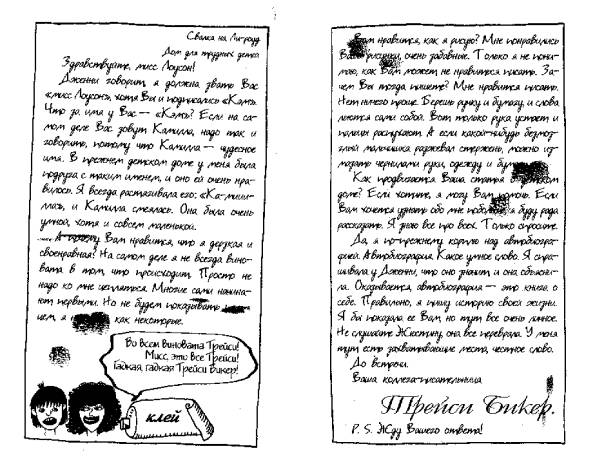 Свалка на Лигроуд
Дом для трудных детей
Здравствуйте, мисс Лоусон!
Дженни говорит, я должна звать Вас
«мисс Лоусон», хотя Вы и подписались «Кэм».
Что за имя у Вас — «Кэм»? Если на са-
мом деле Вас зовут Камилла, надо так и
говорить, потому что Камилла — чудесное
имя. В прежнем детском доме у меня была
подруга с таким именем, и оно ей очень нра-
вилось. Я всегда растягивала его: «Ка-миии-
лла», и Камилла смеялась. Она была очень
умной, хотя и совсем маленькой.
А почему Вам нравится, что я дерзкая и
своенравная? На самом деле я не всегда вино-
вата в том, что происходит. Просто не
надо ко мне цепляться. Многие сами начина-
ют первыми. Но не будем показывать
чем, я как некоторые.
Во всем виновата Трейси!
Мисс, это все Трейси!
Гадкая, гадкая Трейси Бикер!
клей
Вам нравится, как я рисую? Мне понравились
Ваши рисунки, очень забавные. Только я не пони-
маю, как Вам может не нравиться писать. За-
чем Вы тогда пишете? Мне нравится писать.
Нет ничего проще. Берешь ручку и бумагу, и слова
льются сами собой. Вот только рука устает и
пальцы распухают. А если какой-нибудь безмоз-
глый мальчишка разжевал стержень, можно из-
мазать чернилами руки, одежду и
Как продвигается Ваша статья о детском
доме? Если хотите, я могу Вам помочь. Если
Вам хочется узнать обо мне побольше, я буду рада
рассказать. Я знаю все про всех. Только спросите.
Да, я по-прежнему корплю над автобиогра-
фией. Автобиография. Какое умное слово. Я спра-
шивала у Дженни, что оно значит, и она объясни-
ла. Оказывается, автобиография — это книга о
себе. Правильно, я пишу историю своей жизни.
Я бы показала ее Вам, но тут все очень личное.
Не слушайте Жюстину, она все переврала. У меня
тут есть захватывающие места, честное слово.
До встречи.
Ваша коллега-писательница
Трейси Бикер.
P. S. Жду Вашего ответа!